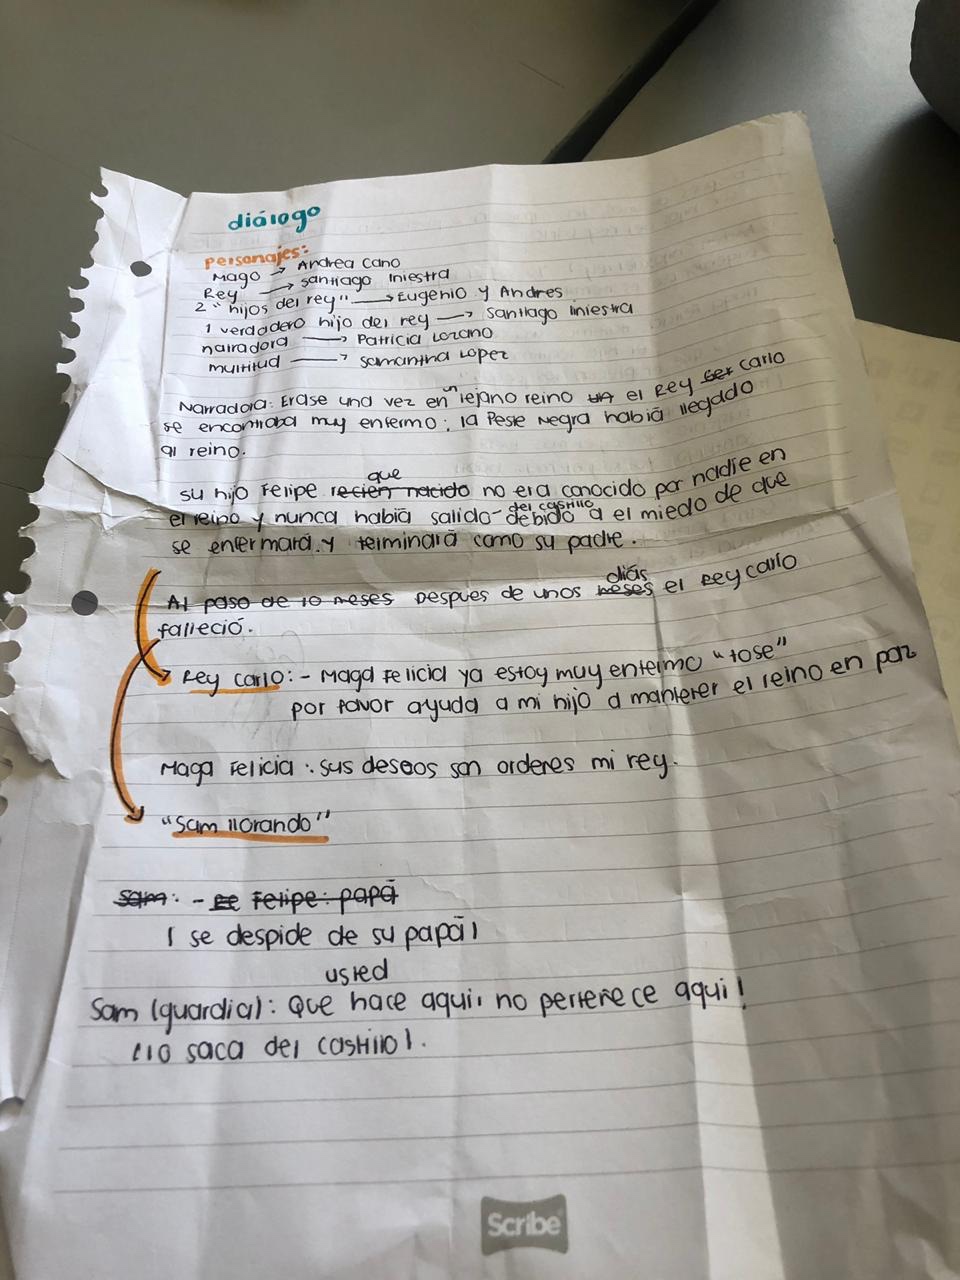 diálogo
personajes:
Mago → Andrea Cano
Rey → Santiago Iniestra
2 "hijos del rey" → Eugenio y Andres
1 verdadero hijo del rey → Santiago Iniestra
narradora → Patricia Lozano
multitud → Samantha Lopez
Narradora: Erase una vez en un lejano reino un el Rey ser carlo
se encontraba muy enfermo; la Peste Negra habiá llegado
al reino.
que
su hijo Felipe recien nacido no era conocido por nadie en
del castillo
el reino y nunca habiá salido debido a el miedo de que
se enfermará y terminará como su padre.
diás
Al paso de 10 meses Despues de unos meses el Rey carlo
falleció.
Rey carlo: - Maga Felicia ya estoy muy enfermo "tose"
por favor ayuda a mi hijo a mantener el reino en paz
Maga Felicia: sus deseos son ordenes mi rey.
"Sam llorando"
Sam: - Felipe: papá
( se despide de su papá)
usted
Sam (guardia): Que hace aqui, no pertenece aqui!
(lo saca del castillo).
Scribe